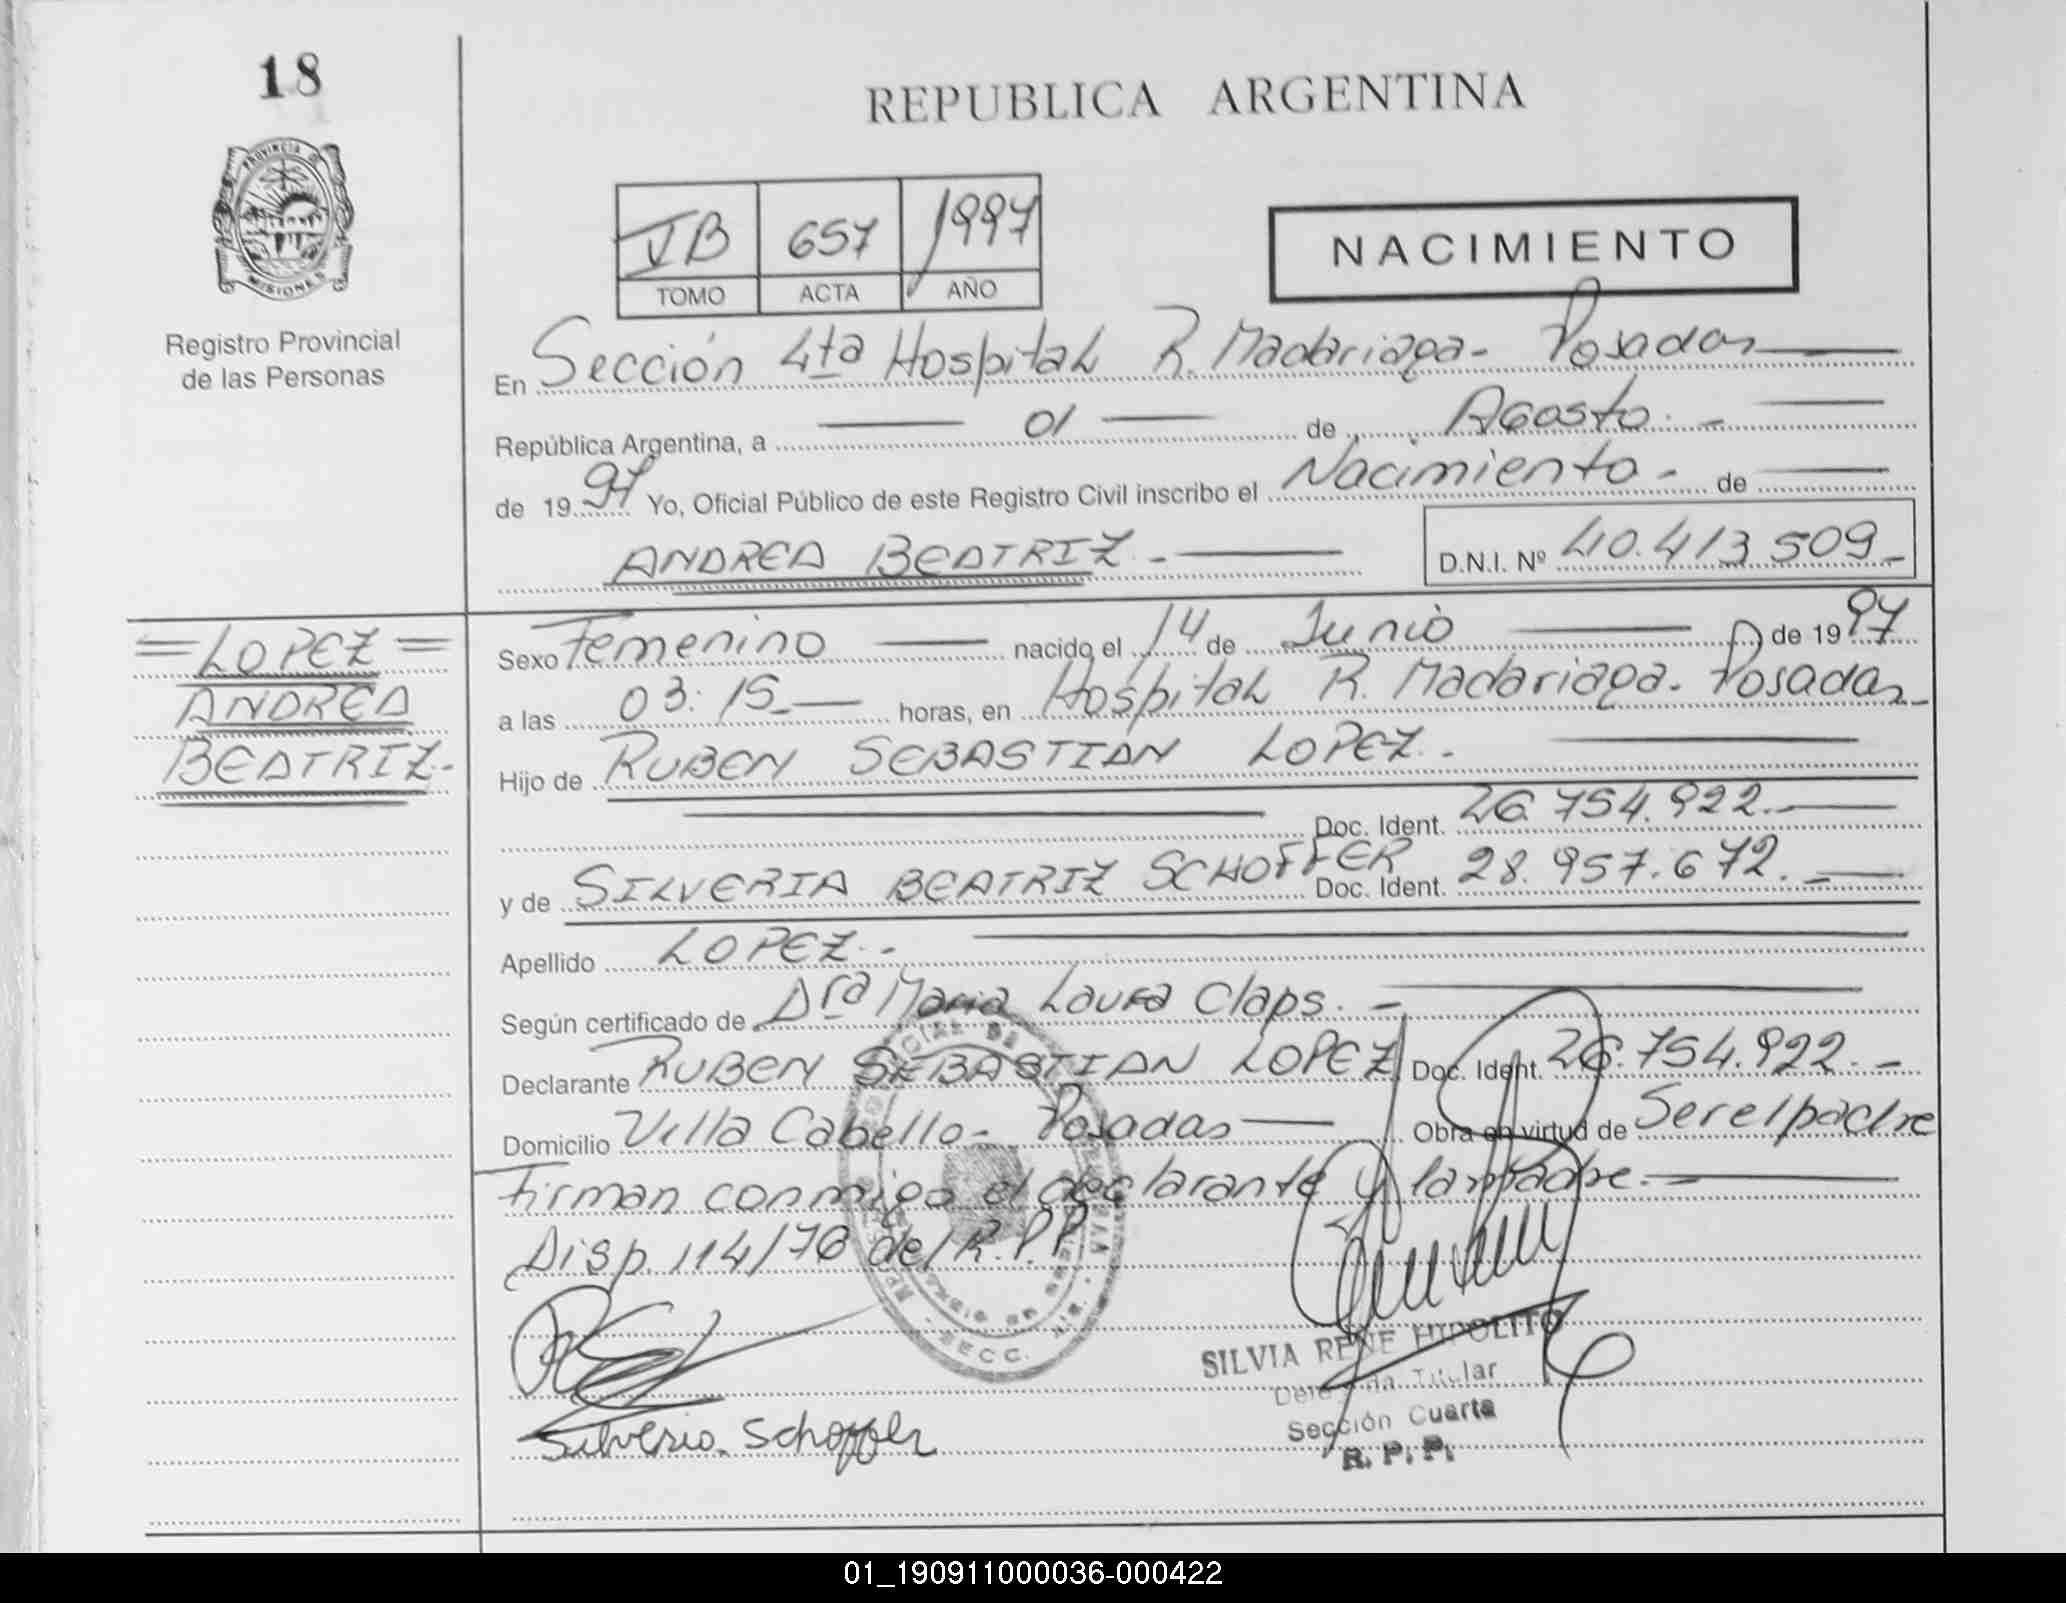 18
REPUBLICA ARGENTINA
PROVINCIA DE
MISIONES
Registro Provincial
de las Personas
VB 657 1997
TOMO ACTA AÑO
NACIMIENTO
En Sección 4ta Hospital R. Madariaga - Posadas
República Argentina, a 01 de Agosto. -
de 1997 Yo, Oficial Público de este Registro Civil inscribo el Nacimiento - de
ANDREA BEATRIZ. - D.N.I. Nº 40.413.509 -
= LOPEZ =
ANDREA
BEATRIZ. -
Sexo Femenino nacido el 14 de Junio de 1997
a las 03:15 horas, en Hospital R. Madariaga. Posadas -
Hijo de RUBEN SEBASTIAN LOPEZ. -
Doc. Ident. 26.754.922. -
y de SILVERIA BEATRIZ SCHOFFER Doc. Ident. 28.957.672. -
Apellido LOPEZ. -
Según certificado de Dra Maria Laura Claps. -
Declarante RUBEN SEBASTIAN LOPEZ Doc. Ident. 26.754.922. -
Domicilio Villa Cabello - Posadas Obra en virtud de Ser el padre
Firman conmigo el declarante y la madre. -
Disp. 114/78 del R.P.P
SECC.
SILVIA RENE HIPOLITO
Titular
Sección Cuarta
R. P. P.
Silveria. Schoffer
01_190911000036-000422